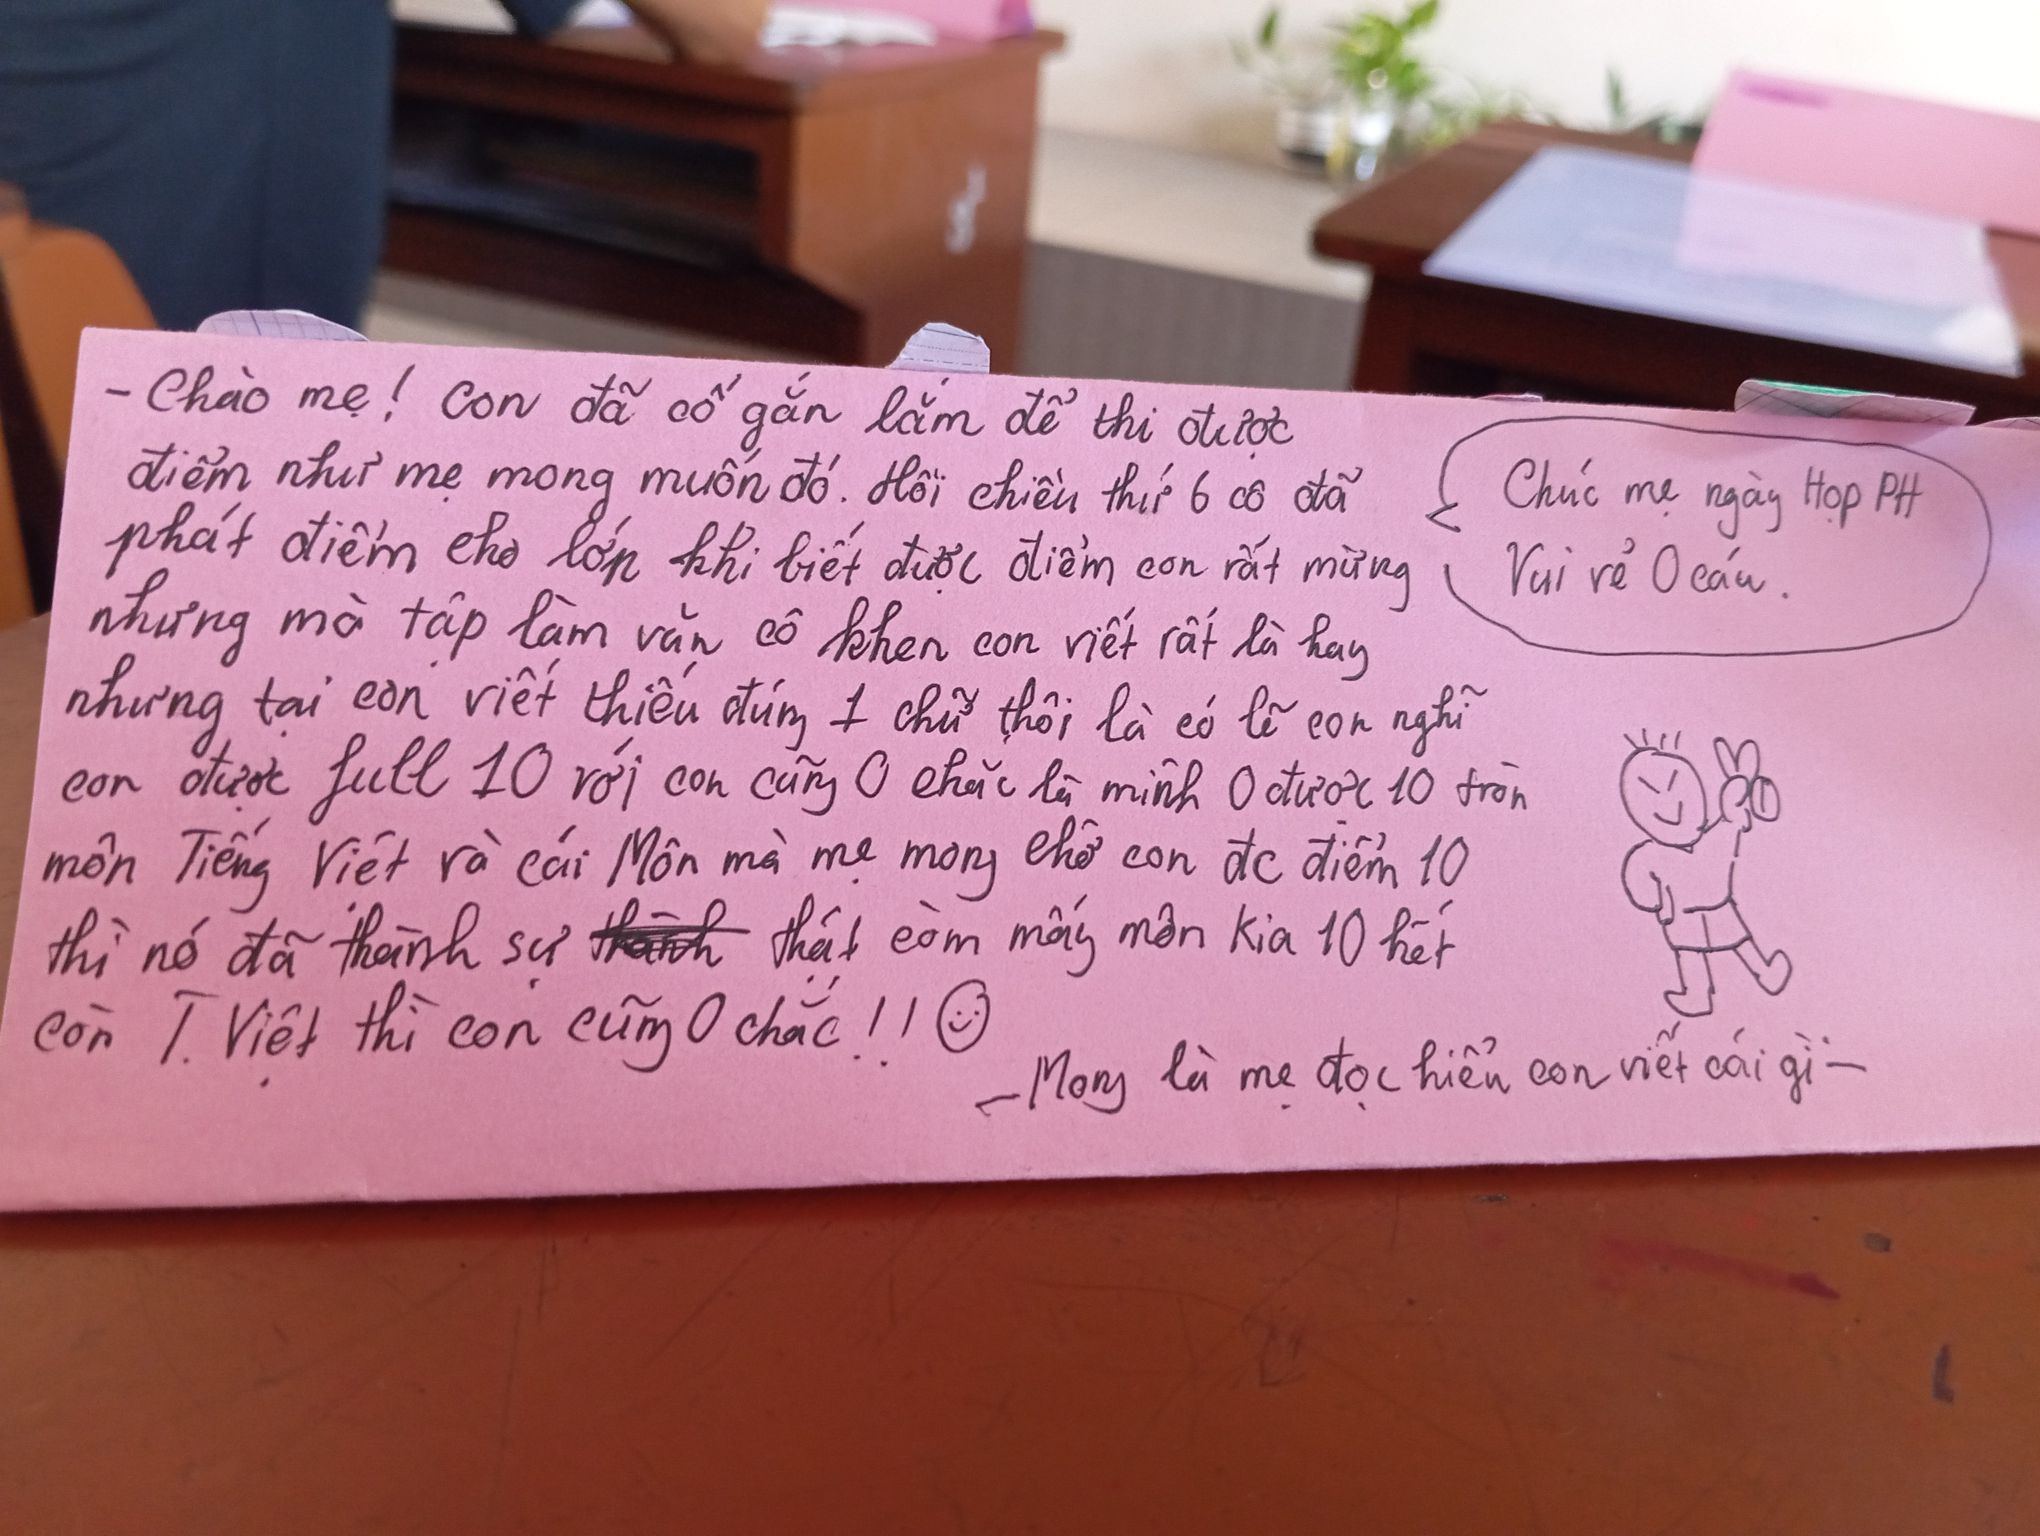 - Chào mẹ! Con đã cố gắn lắm để thi được
điểm như mẹ mong muốn đó. Hồi chiều thứ 6 cô đã
phát điểm cho lớp khi biết được điểm con rất mừng
nhưng mà tập làm văn cô khen con viết rất là hay
nhưng tại con viết thiếu đúng 1 chữ thôi là có lẽ con nghĩ
con được full 10 với con cũng 0 chắc là mình 0 được 10 tròn
môn Tiếng Việt và cái Môn mà mẹ mong chờ con đc điểm 10
thì nó đã thành sự thành thật còm mấy môn kia 10 hết
còn T. Việt thì con cũng 0 chắc!!
- Mong là mẹ đọc hiểu con viết cái gì -
Chúc mẹ ngày Họp PH
Vui vẻ 0 cáu.